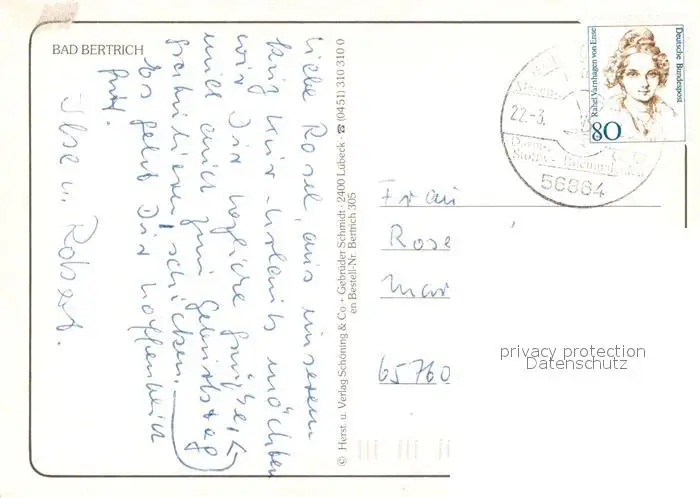 BAD BERTRICH
Liebe Rosel, aus unserem
Kurz Kur-Urlaub möchten
wir Dir herzliche Grüße, u.
mich auch zum Geburtstag
gratulieren schicken.
Es geht Dir hoffentlich
gut.
Ilse u. Robert.
© Herst. u. Verlag Schöning & Co + Gebrüder Schmidt · 2400 Lübeck · ☎ (0451) 310 310 0
en Bestell-Nr. Bertrich 305
Rahel Varnhagen von Ense
Deutsche Bundespost
80
22.-3.
56864
Frau
Rose
Mar
65760
privacy protection
Datenschutz